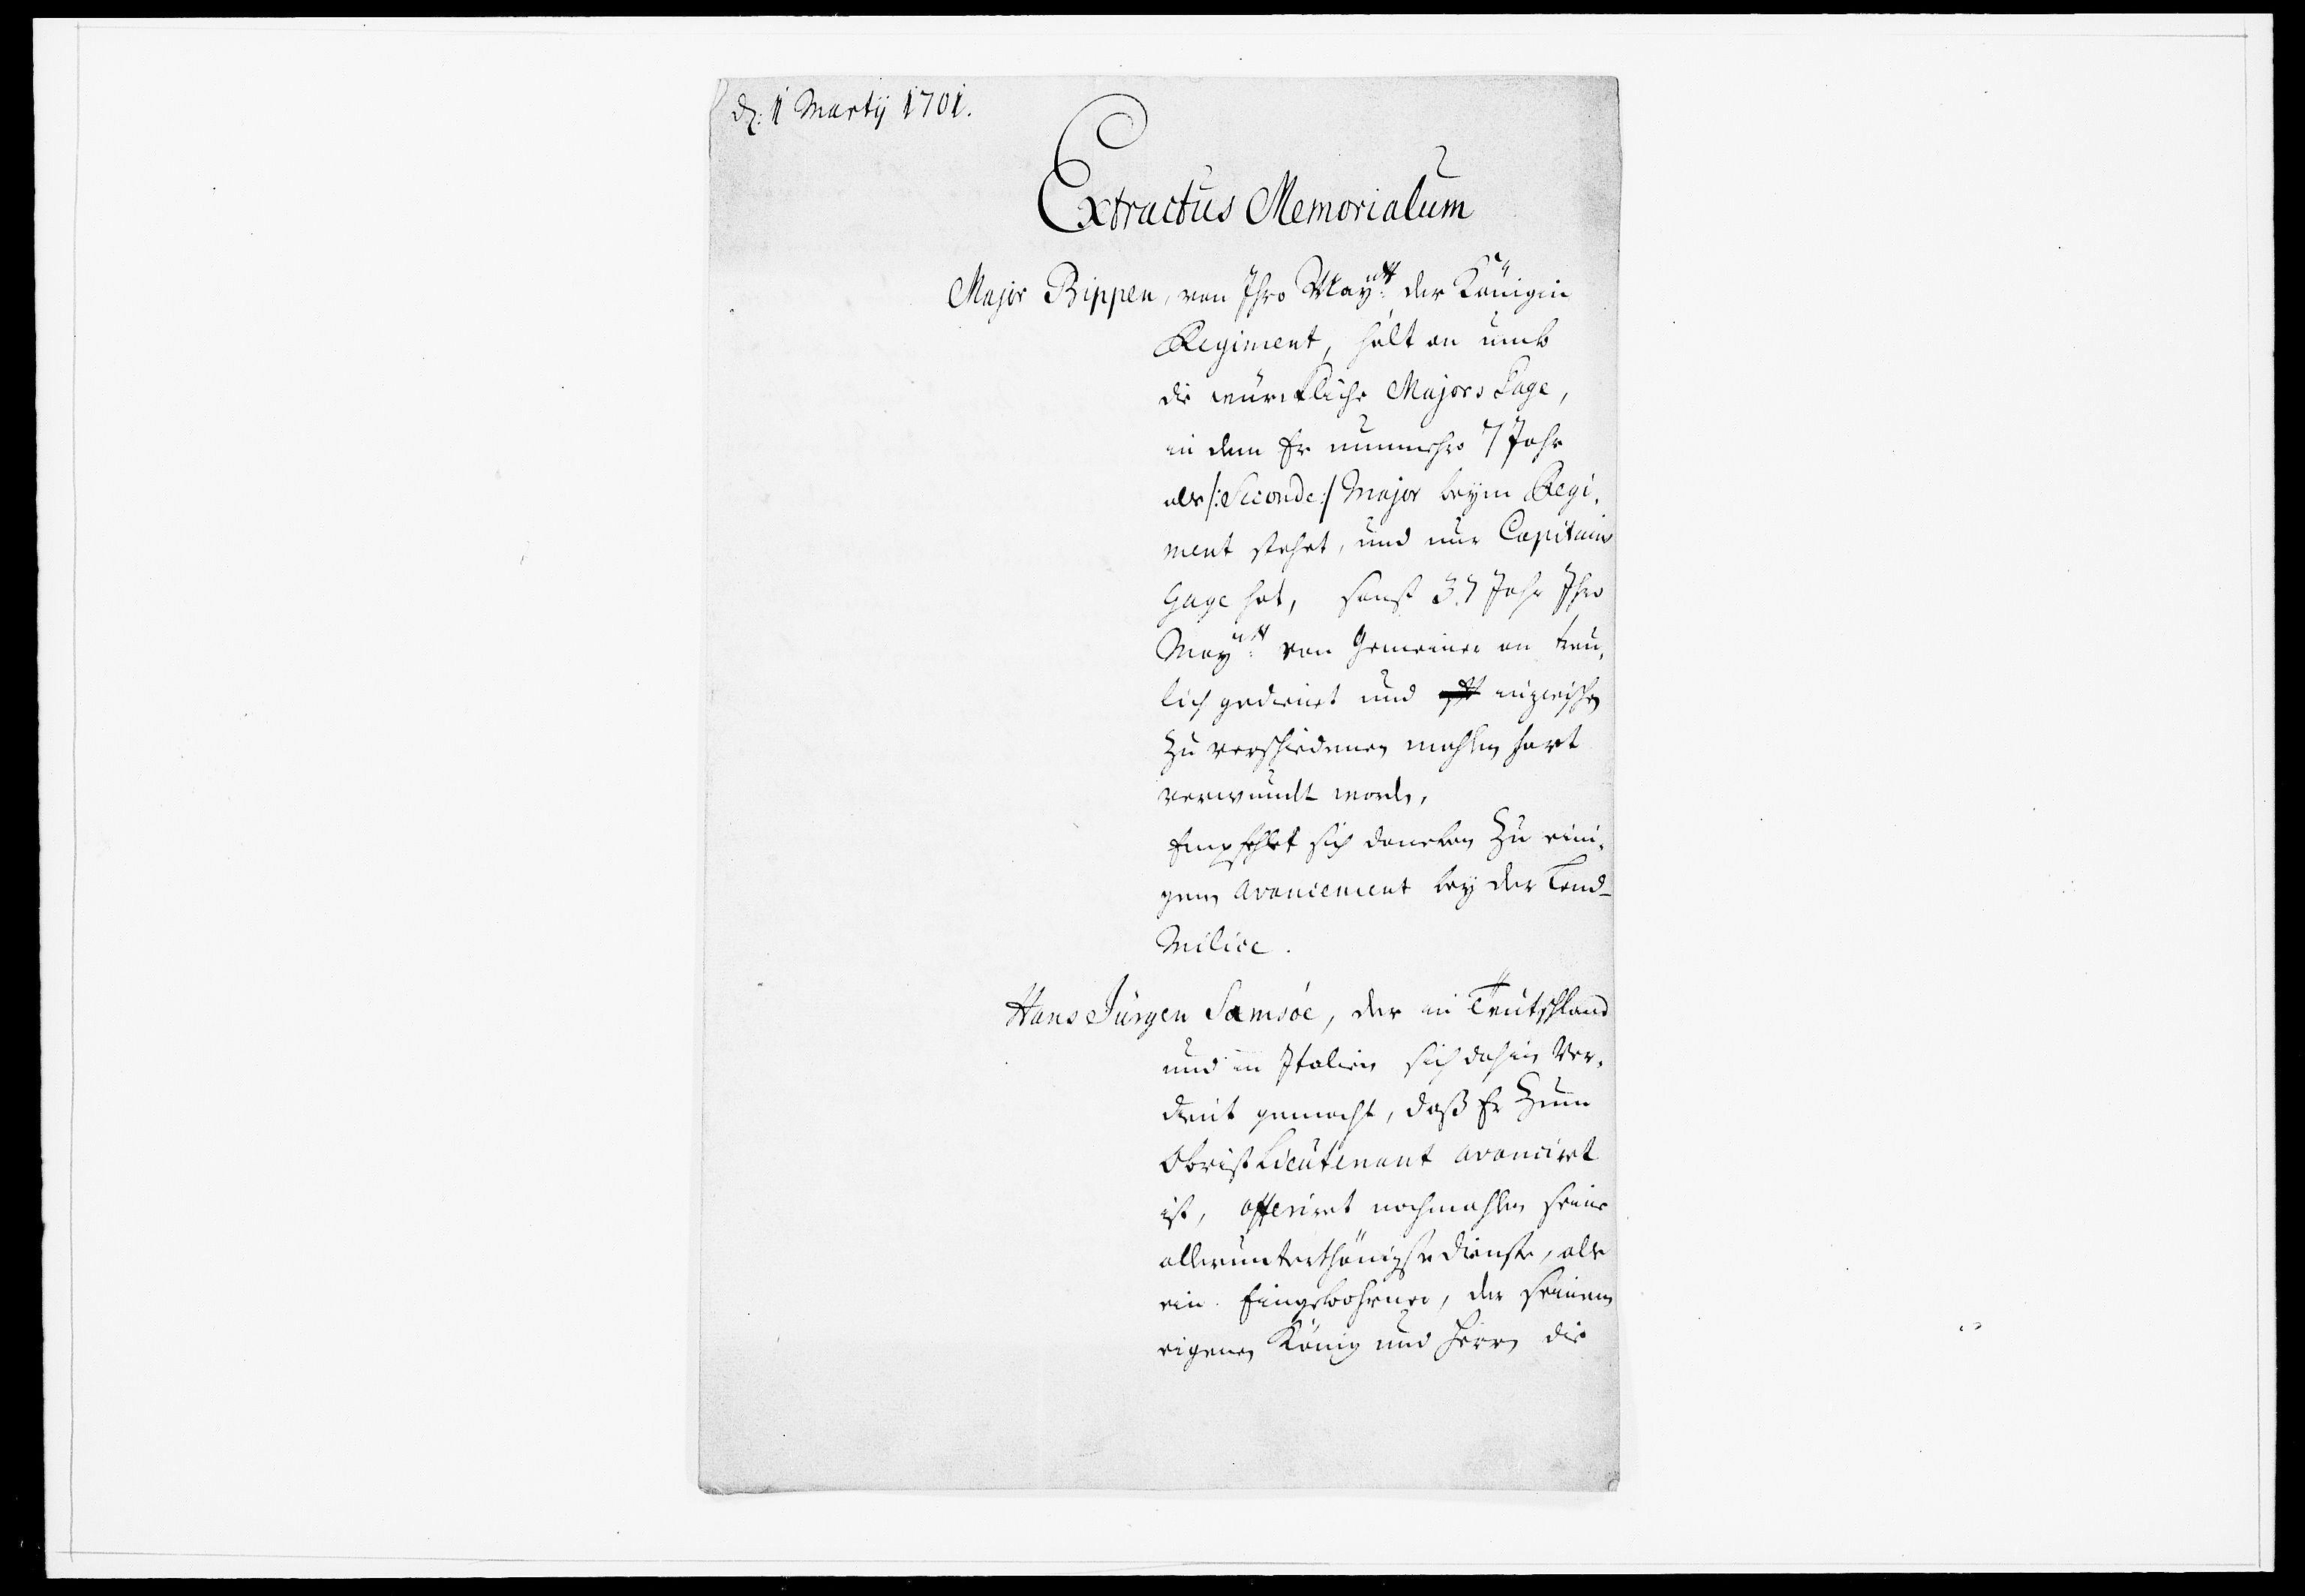 d. 1 Martij 1701.
Extractus Memorialium
Major Bippen, von Ihro Mayᵗᵗ: der Königin
Regiment, hält an umb
die würckliche Majors Gage,
in dem Er nunmehro 7 Jahr
als /:Seconde:/ Major beym Regi-
ment stehet, und nur Capitains
Gage hat, sonst 37 Jahr Ihro
Mayᵗᵗ: von Gemeiner an treu-
lich gedienet und inzwischen
zu verschiedenen mahlen hart
verwundt worden,
Empfehlet sich daneben zu eini-
gem Avancement bey der Land-
Milice.
Hans Jürgen Samsöe, der in Teutschland
und in Italien sich dahin Ver-
dient gemacht, daß Er zum
Obrist Lieutenant avanciret
ist, offeriret nochmahlen seine
allerunterthänigste Dienste, als
ein Eingebohrner, der seinem
eigenen König und Herrn die